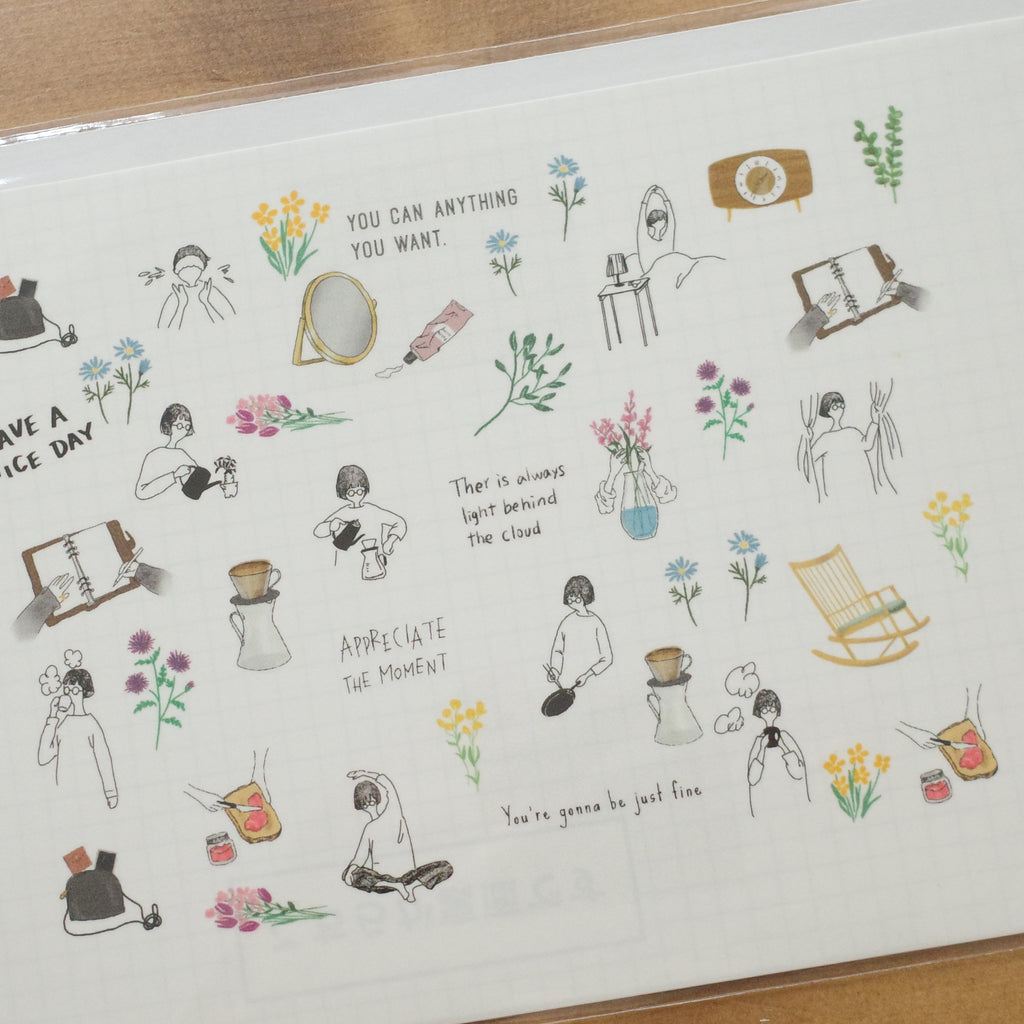 YOU CAN ANYTHING
YOU WANT.
AVE A
ICE DAY
Ther is always
light behind
the cloud
APPRECIATE
THE MOMENT
You're gonna be just fine